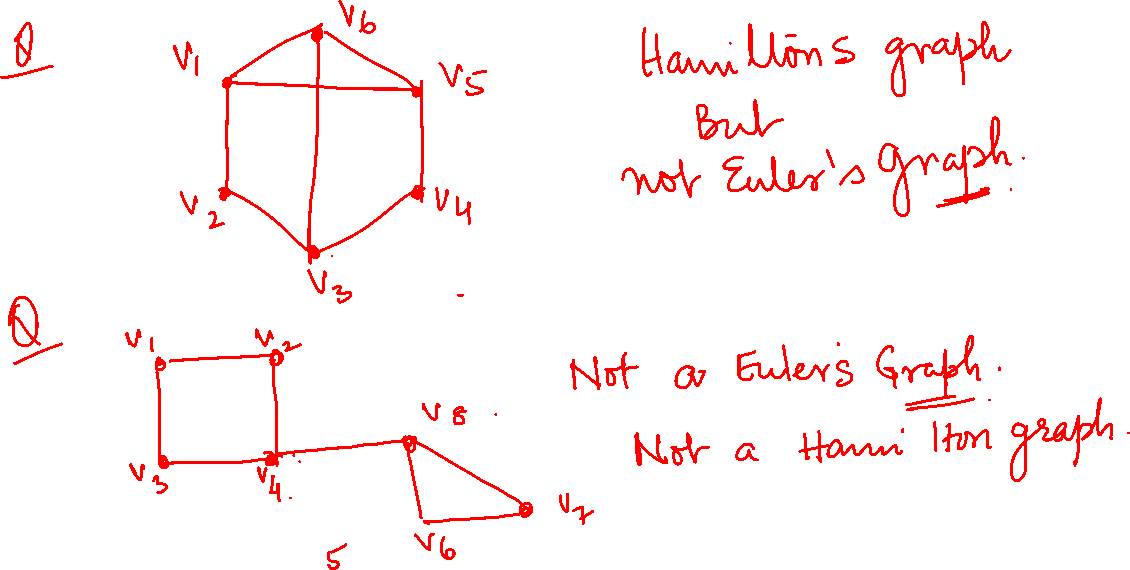 Q
V6
V1
V5
V2
V4
V3
Hamiltons graph
But
not Euler's graph.
Q
V1 V2
V8
V3 V4
V7
V6
5
Not a Euler's Graph.
Not a Hamilton graph.